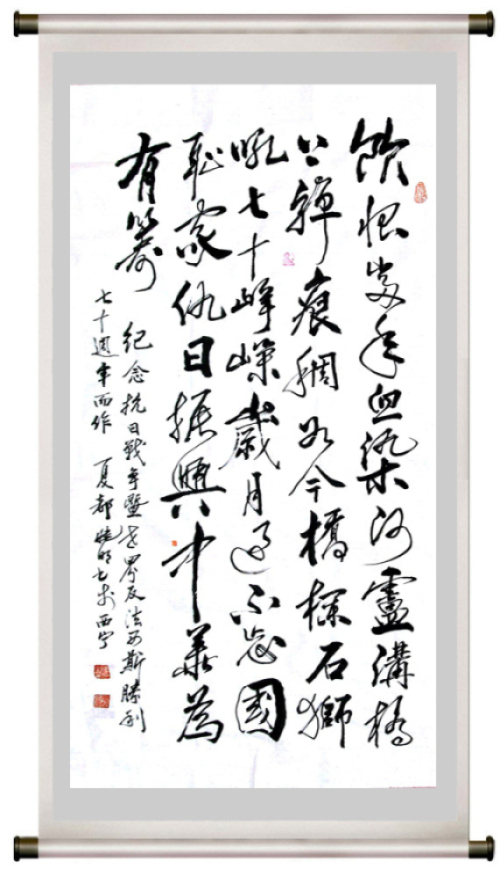 飲恨當年血染河盧溝橋
上彈痕稠如今橋欄石獅
吼七十崢嶸歲月過不忘國
恥家仇日振興中華為
有籌
紀念抗日戰爭暨世界反法西斯勝利
七十週年而作 夏都曉明書於西寧